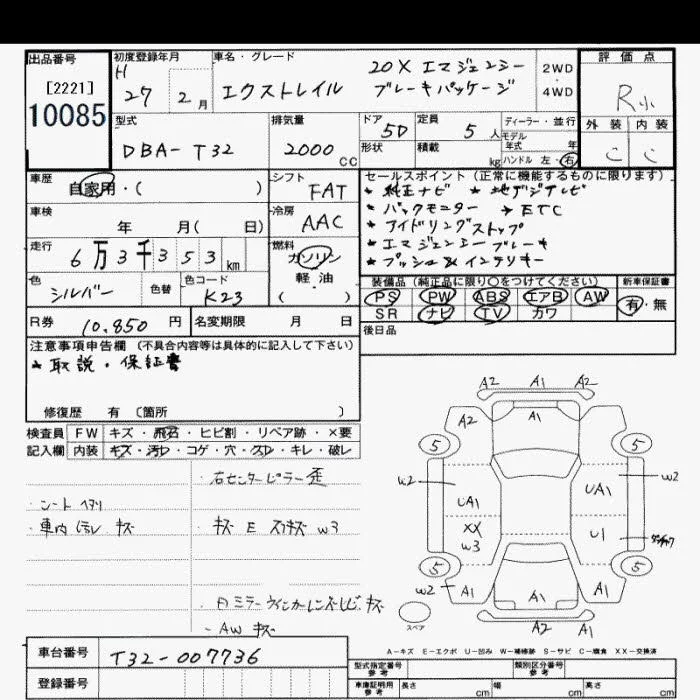 出品番号
[2221]
10085
初度登録年月
H
27 2月
車名・グレード
エクストレイル
20X エマージェンシー
ブレーキパッケージ
2WD
4WD
評価点
R小
外装 内装
C C
型式
DBA-T32
排気量
2000 CC
ドア
5D
形状
定員
5人
積載
kg
ディーラー・並行
モデル年式 年
ハンドル 左・右
車歴
自家用・( )
車検
年 月( 日)
走行
6万3千353km
色
シルバー
色替
色コード
K23
シフト
FAT
冷房
AAC
燃料
ガソリン
軽油
( )
セールスポイント(正常に機能するものに限ります)
★ 純正ナビ ★ 地デジテレビ
★ バックモニター ★ ETC
★ アイドリングストップ
★ エマージェンシーブレーキ
★ プッシュ&インテリキー
装備品(純正品に限り○をつけてください)
PS PW ABS エアB AW
SR ナビ TV カワ
新車保証書
有・無
R券 10,850円
名変期限 月 日
後日品
注意事項申告欄(不具合内容等は具体的に記入して下さい)
★取説・保証書
修復歴 有 〔箇所 〕
検査員
記入欄
FW キズ・飛石・ヒビ割・リペア跡・×要
内装 キズ・汚レ・コゲ・穴・スレ・キレ・破レ
・右センターピラー歪
・シートヘタリ
・車内 キズ
・キズ E スリキズ W3
ミラーウィンカーレンズヒビ キズ
・AW キズ
A2 A1 A2
A2 A1
5 5
W2 W2
UA1 UA1
XX
W3
U1
5 5
W2 A1 A1 A1
A2 A1
スペア
A-キズ E-エクボ U-凹み W-補修跡 S-サビ C-腐食 XX-交換済
車台番号 T32-007736
登録番号
型式指定番号
参考
類別区分番号
参考
車庫証明用
参考
長さ cm 幅 cm 高さ cm